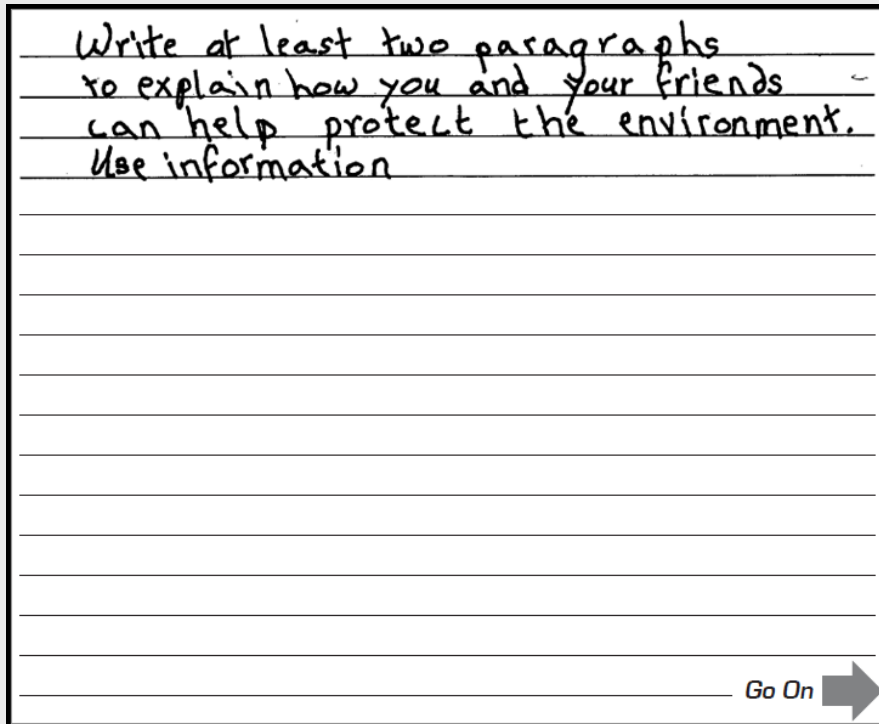 Write at least two paragraphs
to explain how you and your friends
can help protect the environment.
Use information
Go On